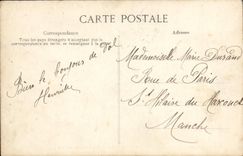 CARTE POSTALE
Correspondance
Adresse
Tous les pays étrangers n'acceptant pas la
correspondance au recto, se renseigner à la poste
Bien le bonjour de Dol
Henriette
Mademoiselle Marie Durand
Rue de Paris
St Hilaire du Harcouet
Manche